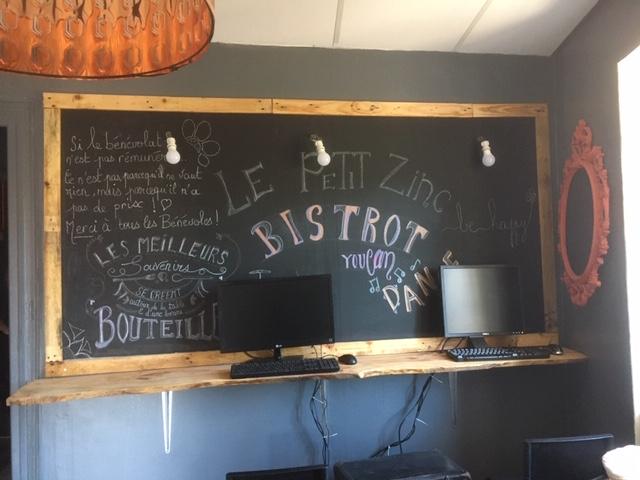 Si le bénévolat
n'est pas rémunéré...
Ce n'est pas parcequ'il ne vaut
rien, mais parcequ'il n'a
pas de prix !
Merci à tous les Bénévoles !
LE PETIT Zinc
be happy
BISTROT
YOU CAN
DANCE
LES MEILLEURS
Souvenirs
SE CRÉENT
autour de la table
& d'une bonne
BOUTEILL